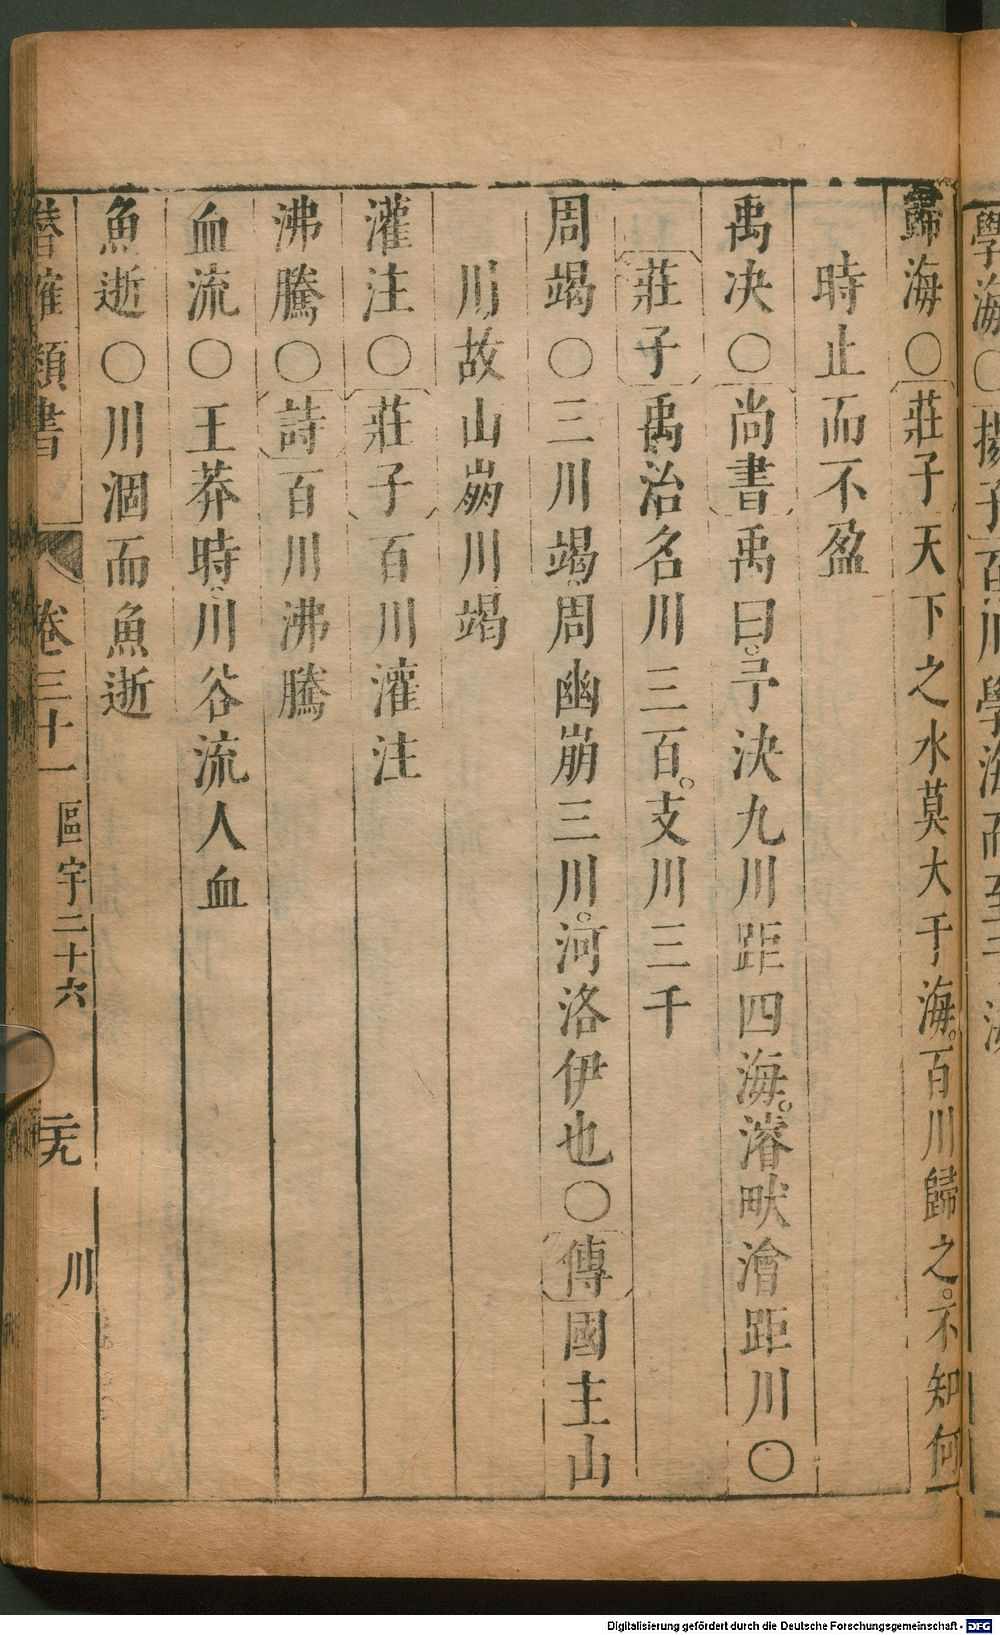 學海〇揚子百川學海而至于海
歸海〇莊子天下之水莫大于海。百川歸之。不知何
時止而不盈
禹決〇尚書禹曰。予決九川距四海。濬畎澮距川〇
莊子禹治名川三百。支川三千
周竭〇三川竭。周幽崩三川。河洛伊也〇傳國主山
川故山崩川竭
灌注〇莊子百川灌注
沸騰〇詩百川沸騰
血流〇王莽時。川谷流人血
魚逝〇川涸而魚逝
潛確類書 卷三十一 區宇二十六 二十九 川
Digitalisierung gefördert durch die Deutsche Forschungsgemeinschaft - DFG